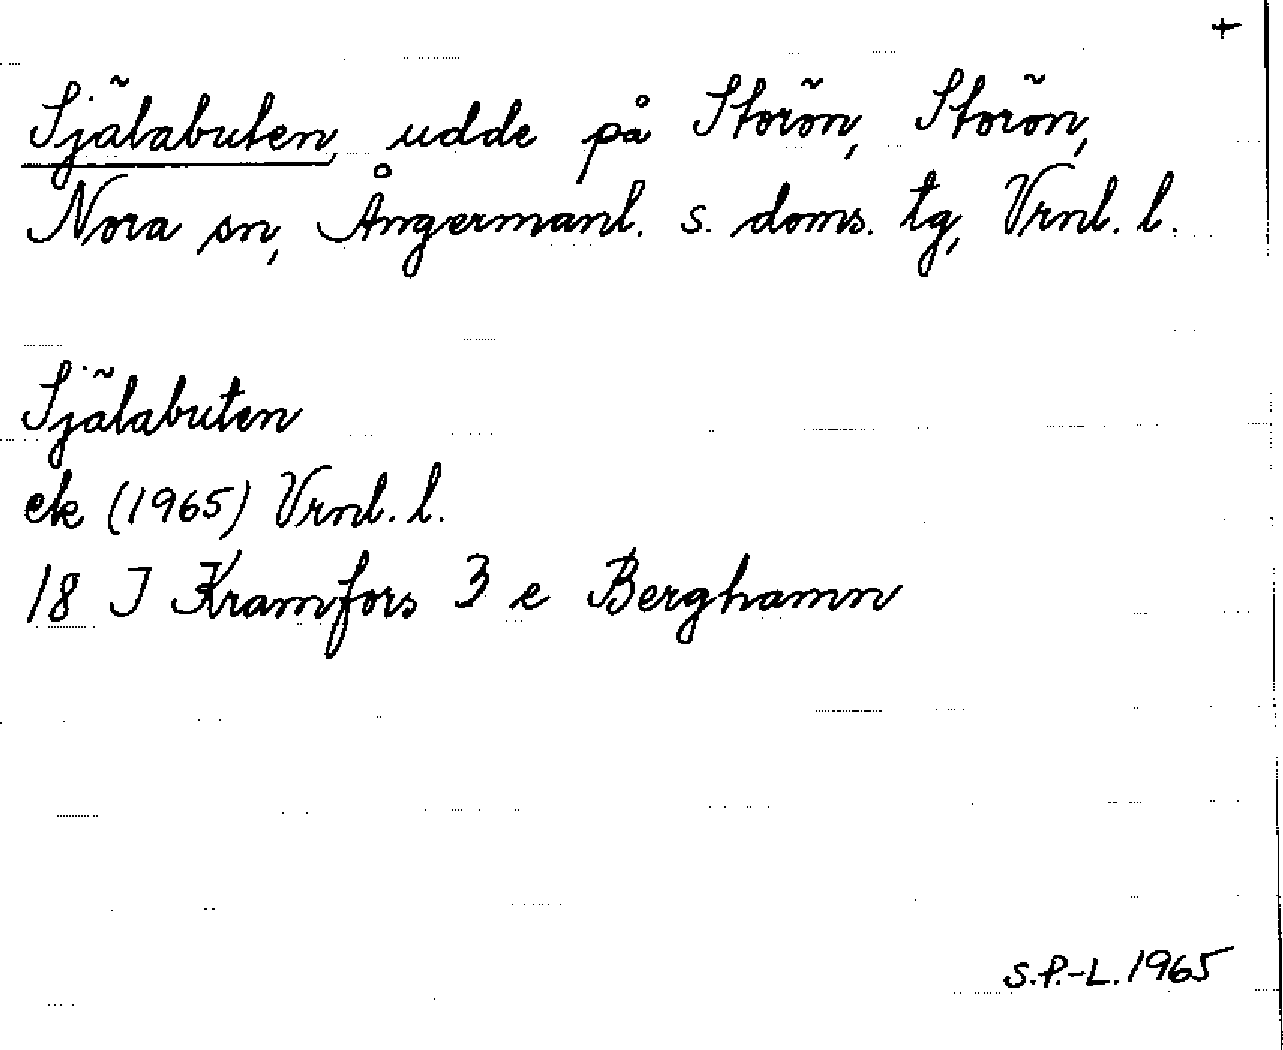 +
Själabuten, udde på Storön, Storön,
Nora sn, Ångermanl. s. doms. tg, Vrnl. l.
Själabuten
ek (1965) Vrnl. l.
18 J Kramfors 3 e Berghamn
S.P.-L. 1965